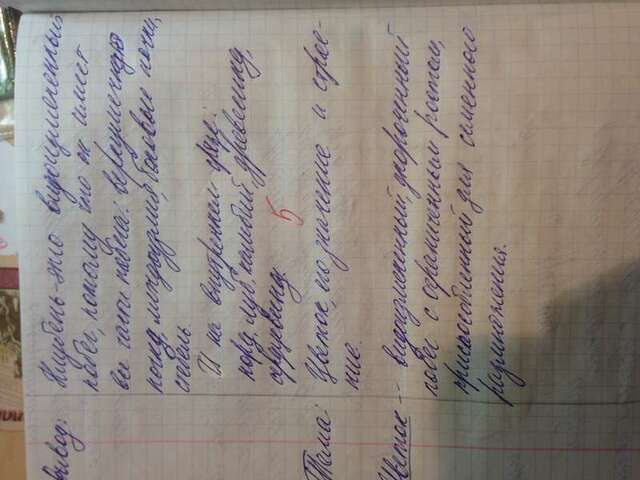 Вывод: Клубень-это видоизмененный
побег, потому что он имеет
все части побега: верхушечную
почку, междоузлия, боковые почки,
стебель.
И на внутреннем срезе:
кору, луб, камбий, древесину,
сердцевину.
5
Тема: Цветок, его значение и строе-
ние.
Цветок -- видоизмененный, укороченный
побег с ограниченным ростом,
приспособленный для семенного
размножения.